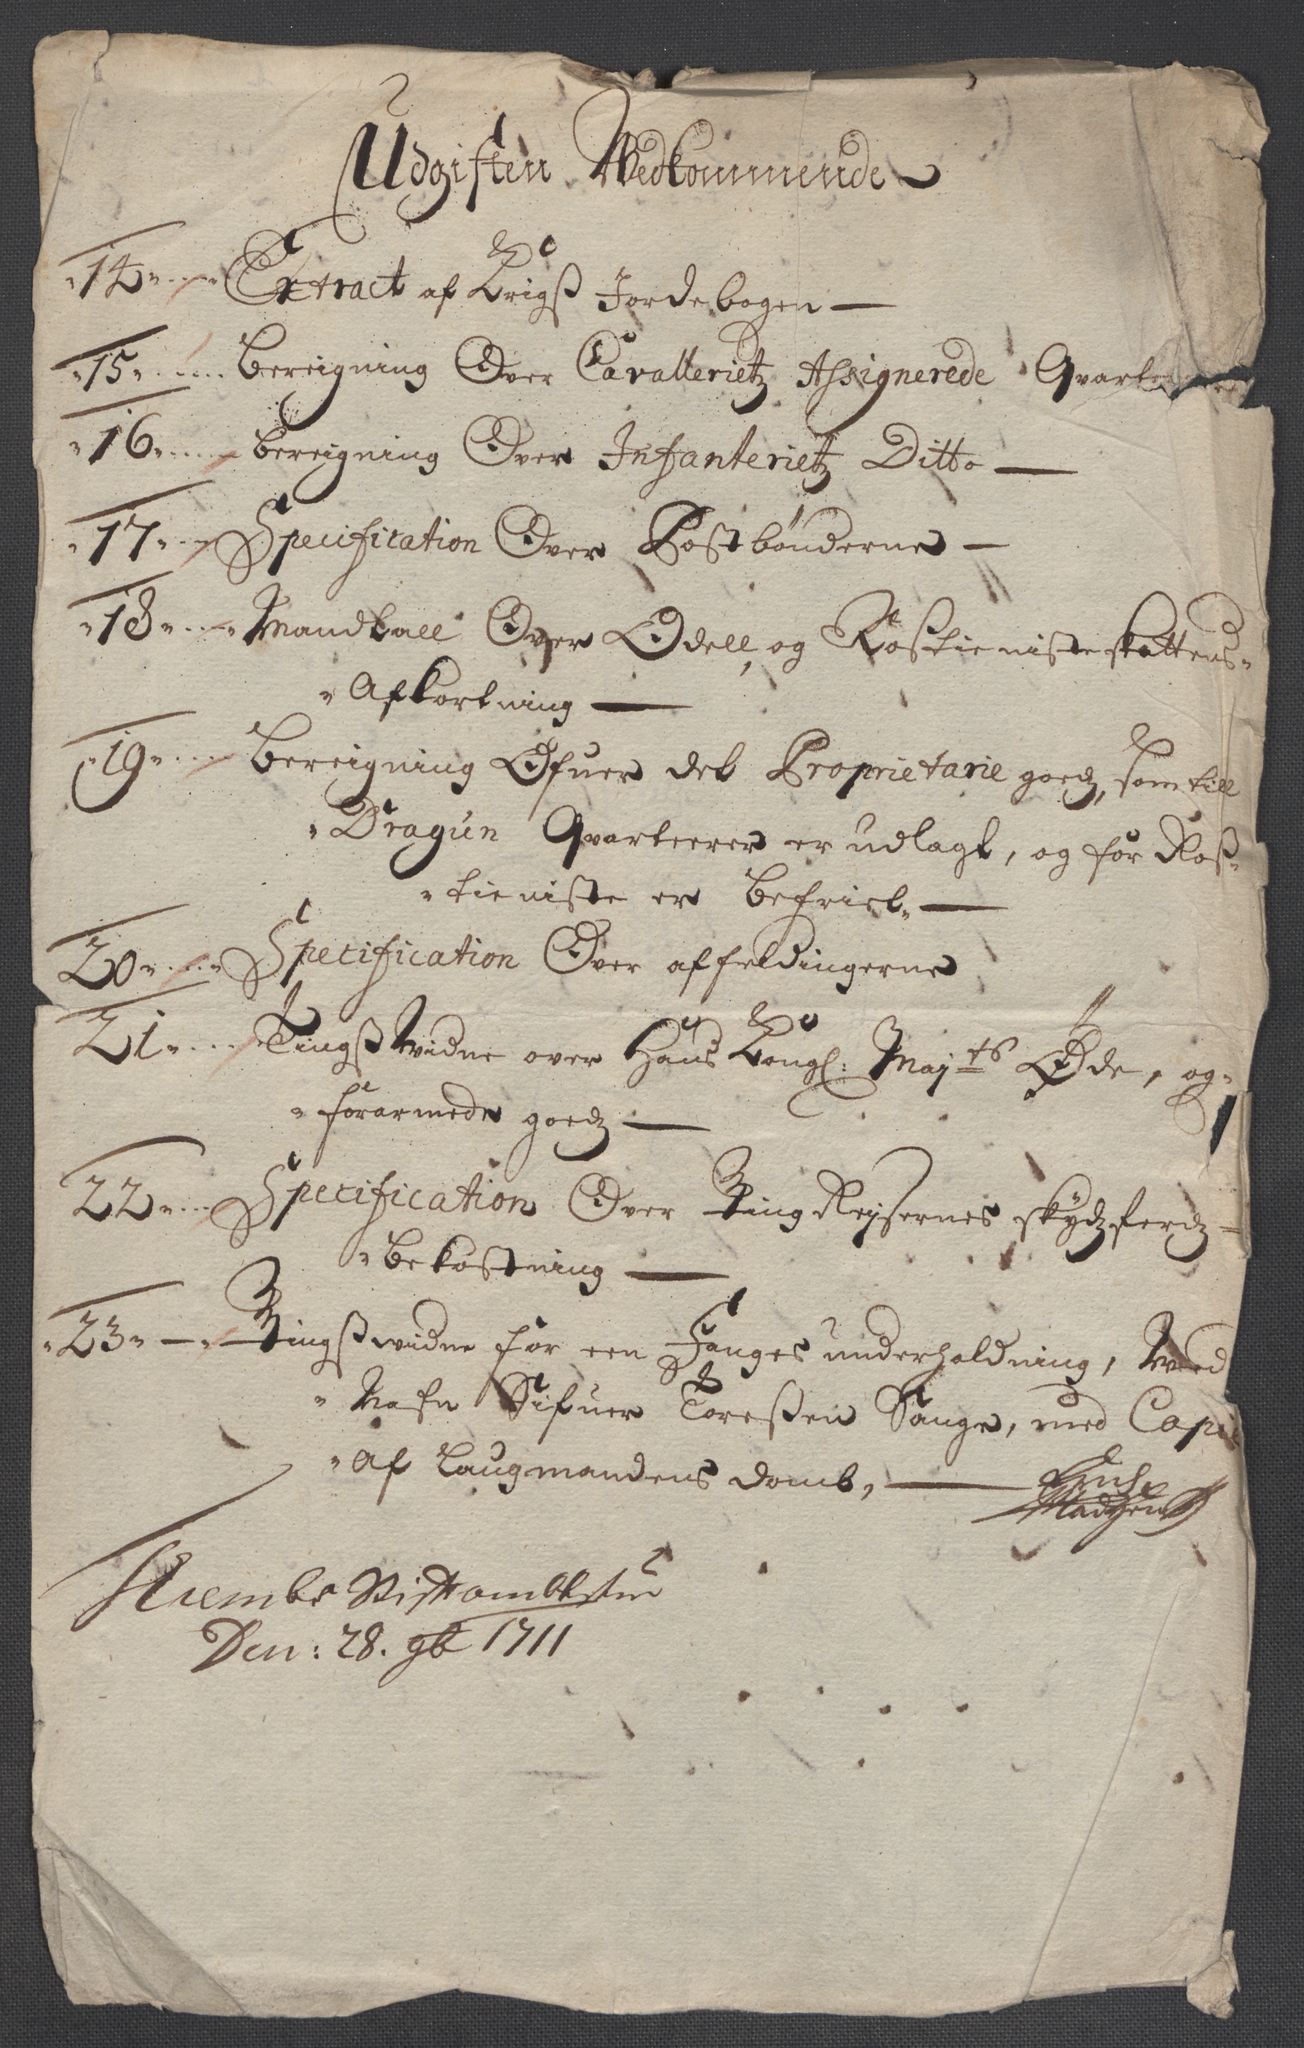 Udgiften Vedkommende
14 Extract af Krigs Jordebogen
15 Bereigning Over Cavallerietz Assignerede
16 Bereigning Over Infanterietz Ditto
17 Specification Over Postbönderne
18 Mandtall Over Odell, og Rostienisteskattens
Afkortning
19 Bereigning Ofuer det Proprietarie goedz, som till
Dragun Qvarteerer er udlagt, og for Ros-
tieniste er befriet.
20 Specification Over affeldingerne
21 Tingsvidne over Hans Kongl: Majts Øde, og
forarmede goedz
22 Specification Over Ting Rejsernes skydzferdz
bekostning
23 Tingsvidne for een Fanges underholdning, Ved
Nafn Sifuer Toressen Sange, med Copie
Af Laugmandens domb,
Madzen
Stiftambtstue
Den: 28. 9b 1711